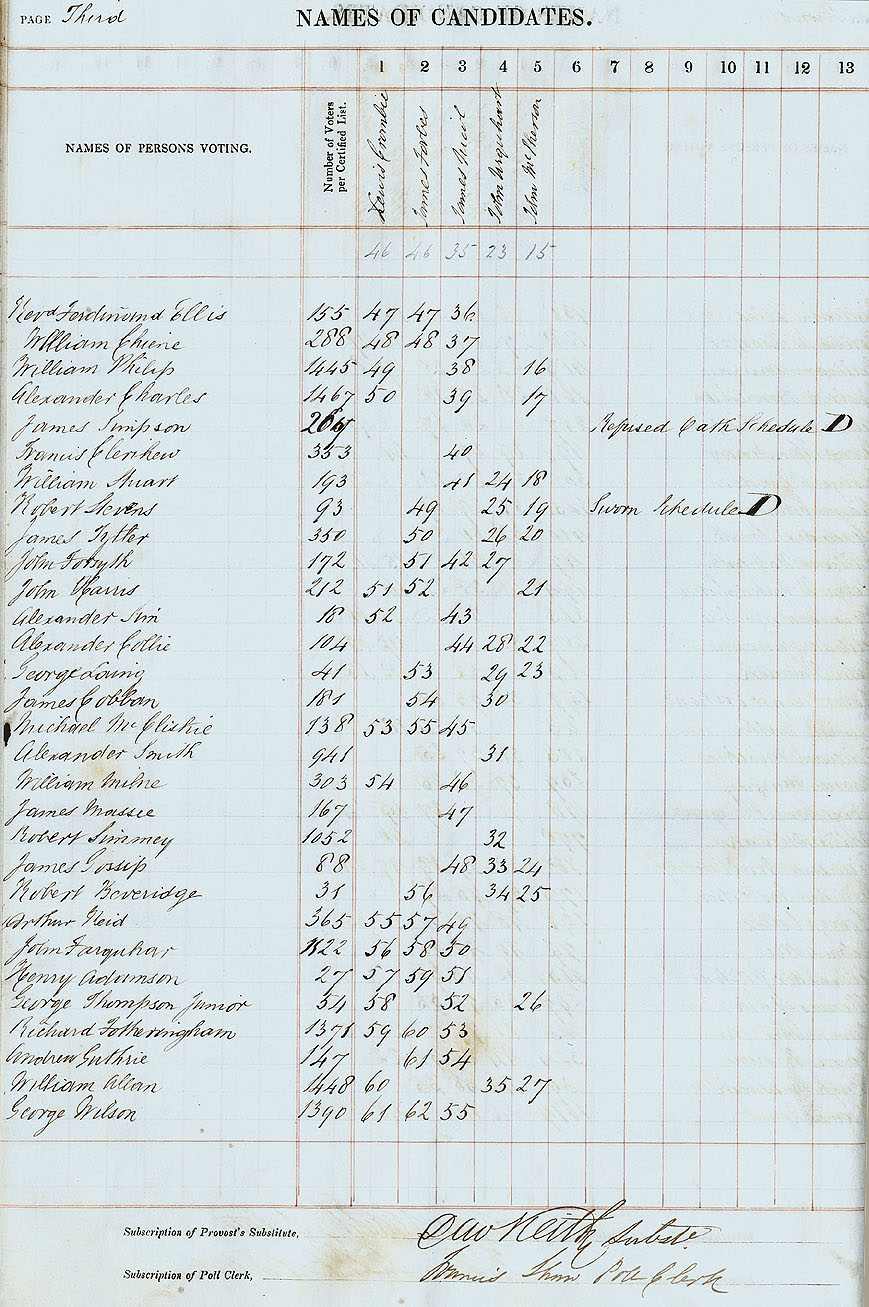 PAGE Third
NAMES OF CANDIDATES.
1 2 3 4 5 6 7 8 9 10 11 12 13
NAMES OF PERSONS VOTING.
Number of Voters
per Certified List.
Lewis Crombie
James Forbes
James Neil
John Urquhart
John McPherson
46 46 35 23 15
Revd Ferdinand Ellis 155 47 47 36
William Chiene 288 48 48 37
William Philip 1445 49 38 16
Alexander Charles 1467 50 39 17
James Simpson Refused Oath Schedule D
Francis Clerihew 353 40
William Stuart 193 41 24 18
Robert Stevens 93 49 25 19 Sworn Schedule D
James Tytler 350 50 26 20
John Forsyth 172 51 42 27
John Harris 212 51 52 21
Alexander Sim 18 52 43
Alexander Collie 104 44 28 22
George Laing 41 53 29 23
James Cobban 181 54 30
Michael McCliskie 138 53 55 45
Alexander Smith 941 31
William Milne 303 54 46
James Massie 167 47
Robert Simmey 1052 32
James Gossip 88 48 33 24
Robert Beveridge 31 56 34 25
Arthur Reid 365 55 57 49
John Farquhar 1122 56 58 50
Henry Adamson 27 57 59 51
George Thompson Junior 54 58 52 26
Richard Fotheringham 1371 59 60 53
Andrew Guthrie 147 61 54
William Allan 1448 60 35 27
George Wilson 1390 61 62 55
Subscription of Provost's Substitute, Dav Keith Subste.
Subscription of Poll Clerk, Francis Shaw Poll Clerk